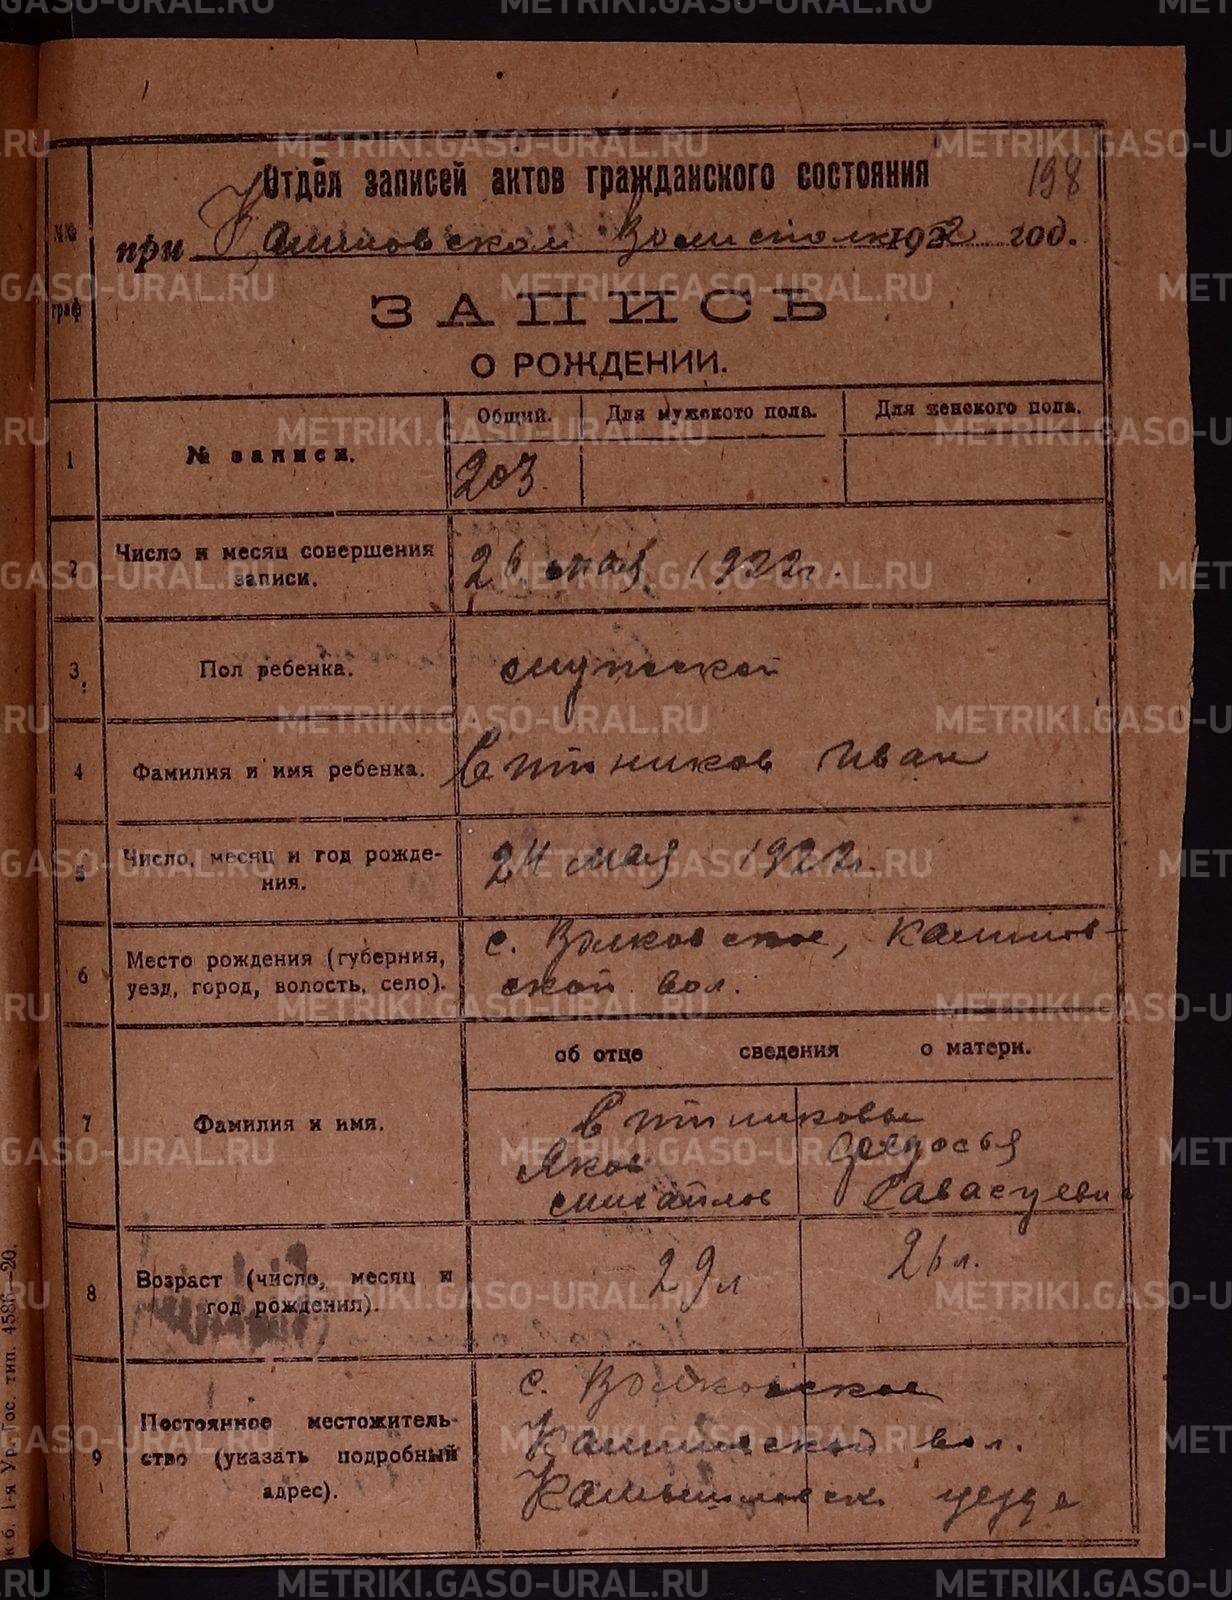 198
Отдел записей актов гражданского состояния
при Волисполк 1922 год.
№№ граф
ЗАПИСЬ
О РОЖДЕНИИ.
Общий. Для мужского пола. Для женского пола.
1 № записи. 203.
2 Число и месяц совершения записи. 26 мая 1922 г.
3 Пол ребенка. мужской
4 Фамилия и имя ребенка. Иван
5 Число, месяц и год рождения. 24 мая 1922 г.
6 Место рождения (губерния, уезд, город, волость, село). с. Волковское,
ской вол.
об отце сведения о матери.
7 Фамилия и имя.
Яков Федосья
8 Возраст (число, месяц и год рождения). 29 л 26 л.
9 Постоянное местожительство (указать подробный адрес). с. Волковское
вол.
Камышловск. уезда
к б. 1-я Ур. Гос. тип. 4586—20.
METRIKI.GASO-URAL.RU